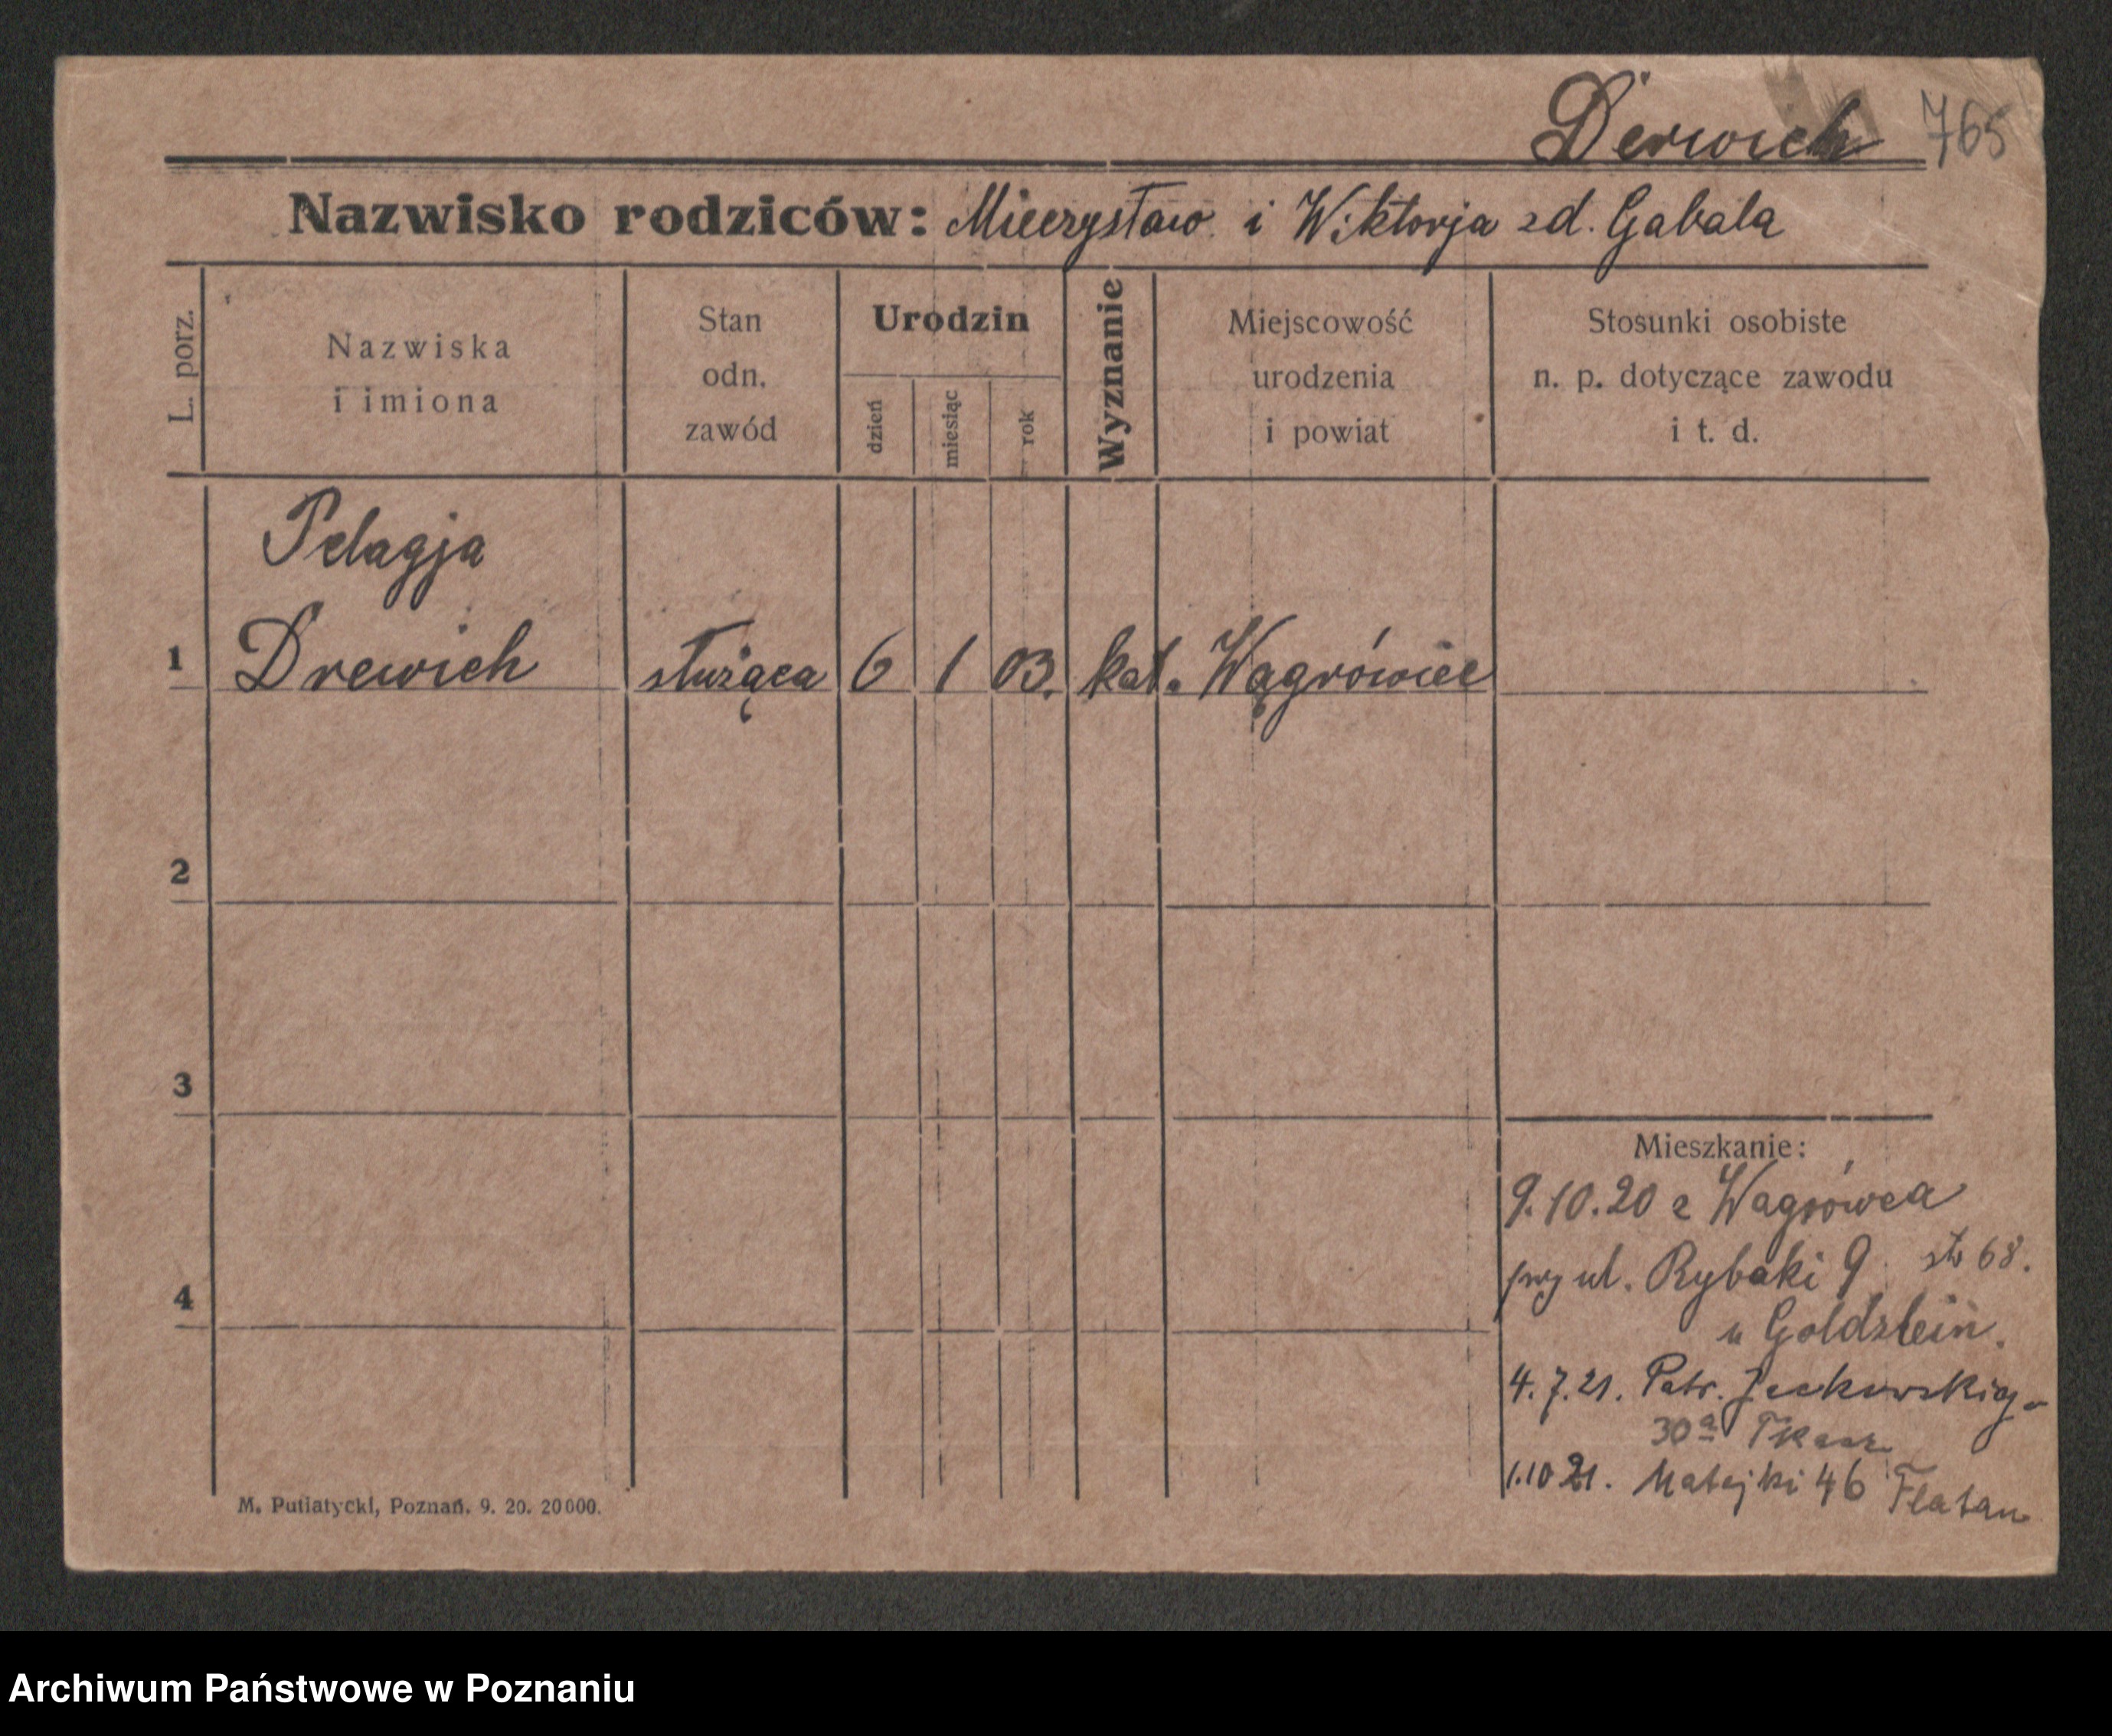 Derwich 765
Nazwisko rodziców: Mieczysław i Wiktorja zd. Gabała
L. porz.
Nazwiska
i imiona
Stan
odn.
zawód
Urodzin
dzień
miesiąc
rok
Wyznanie
Miejscowość
urodzenia
i powiat
Stosunki osobiste
n. p. dotyczące zawodu
i t. d.
Pelagja
1 Drewich służąca 6 1 03. kat. Wągrówiec
2
3
4
Mieszkanie:
9.10.20 z Wagrówca
przy ul. Rybaki 9 68.
u Goldstein.
4.7.21. Patr. Jackowskieg-
30a Tkacz
1.10 21. Matejki 46 Flatau
M. Putiatycki, Poznań. 9. 20. 20000.
Archiwum Państwowe w Poznaniu